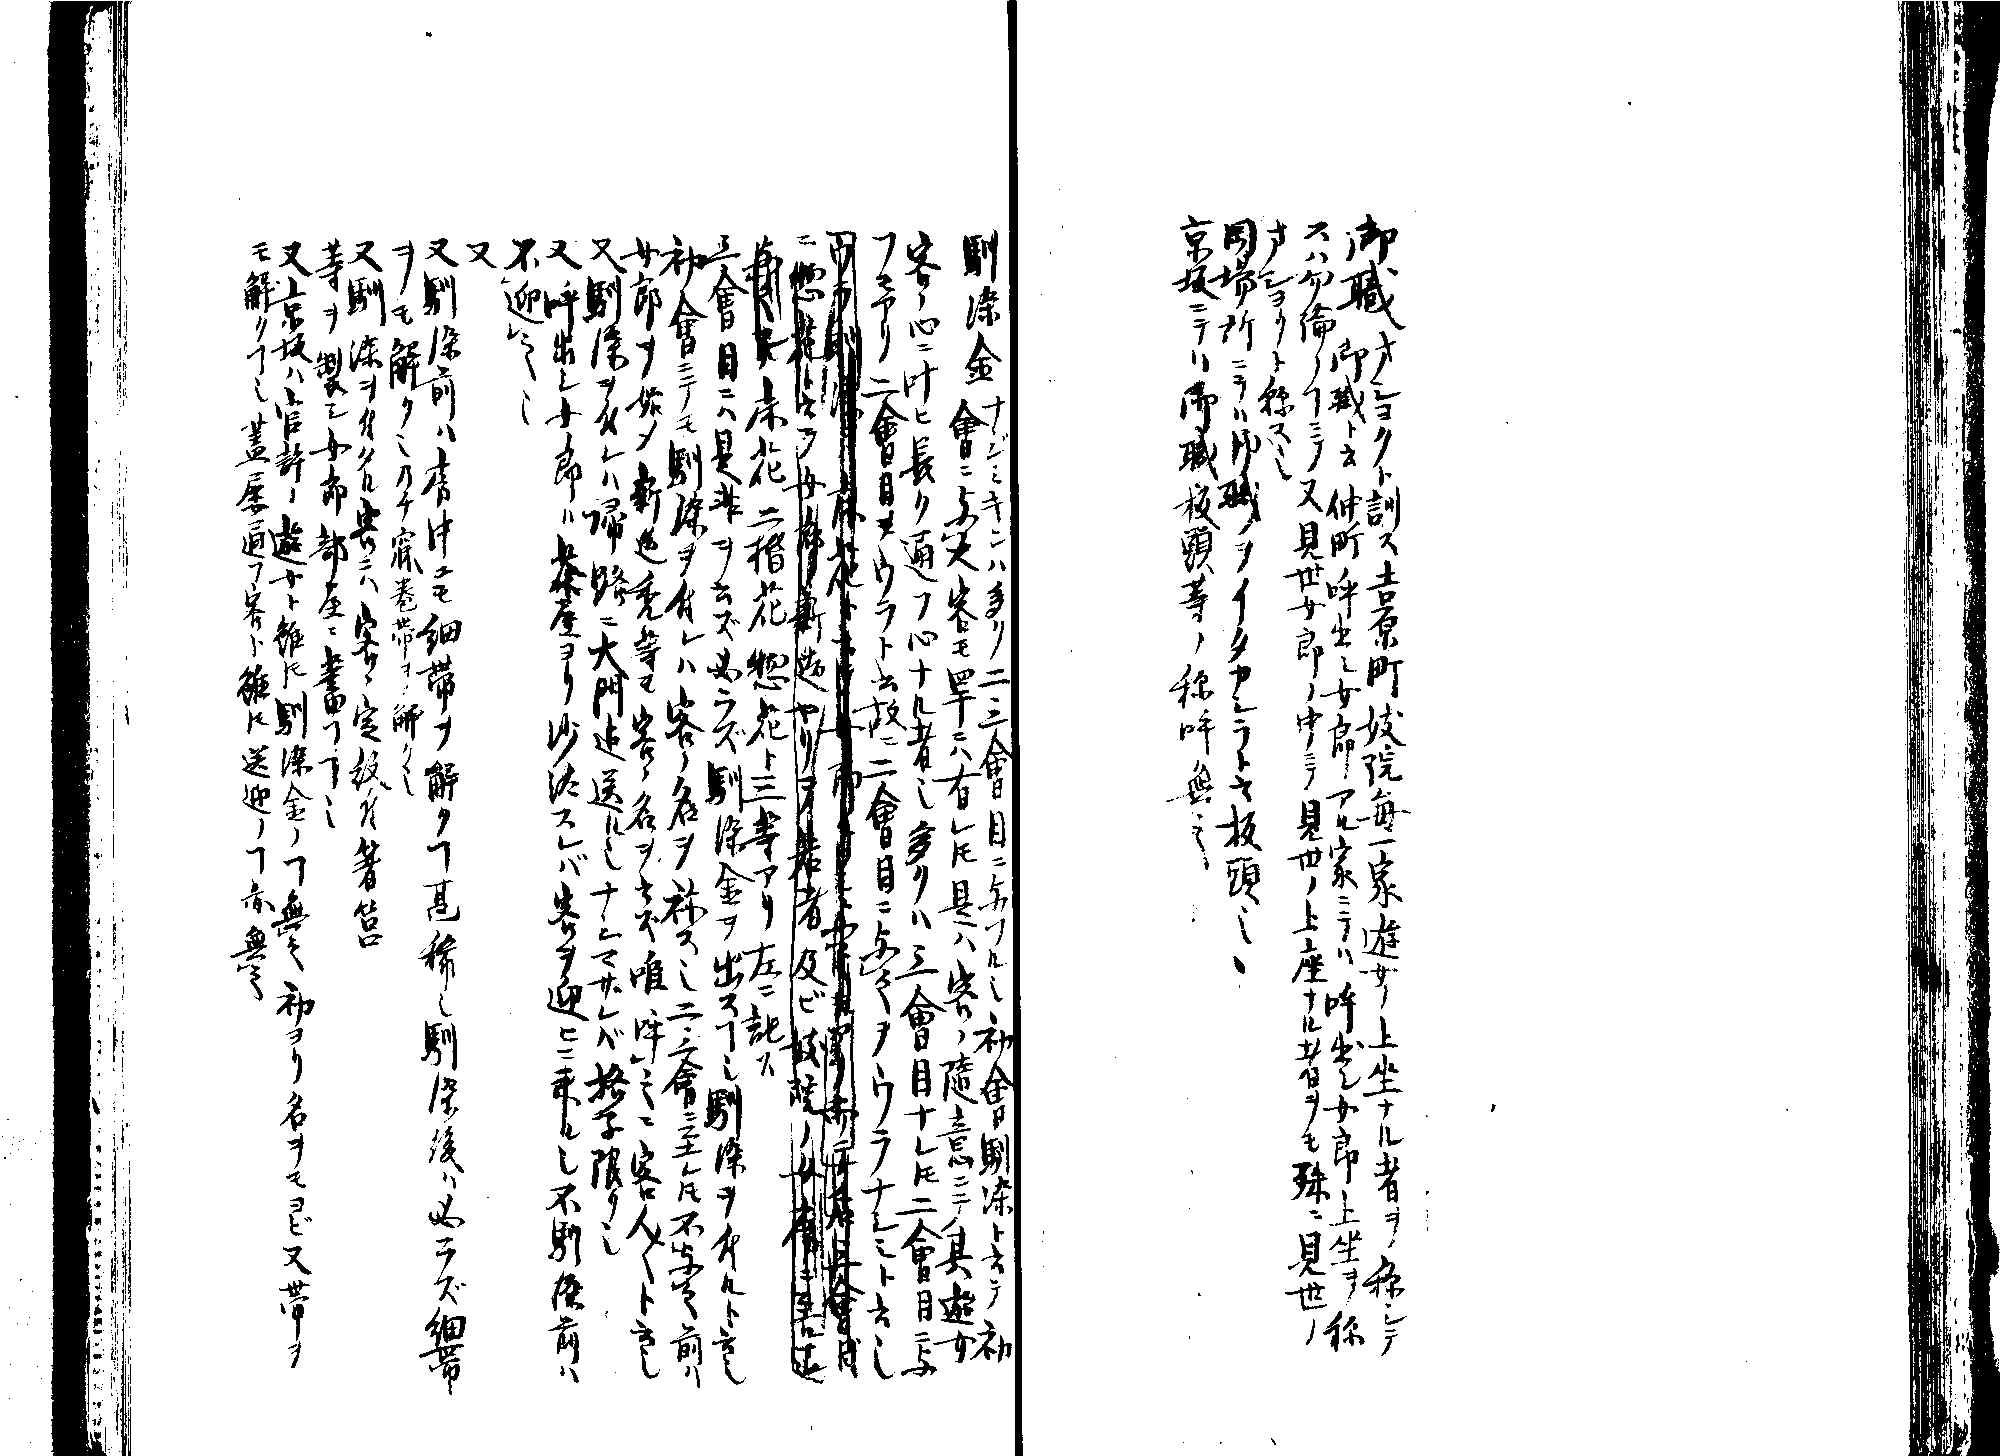 御職 オショクト訓ス吉原町妓院毎一家遊女ノ上坐ナル者ヲ称シテ
御職ト云仲町呼出シ女郎アル家ニテハ呼出シ女郎上坐ヲ称
スハ勿論ノコニテ又見世女郎ノ中ニテ見世ノ上座ナル者ヲモ殊ニ見世ノ
オショクト称ス也
岡場所ニテハ御職ヲイタカシラト云板頭也
京坂ニテハ御職板頭等ノ称呼無之
馴染金 ナジミキンハ多ク二三會目ニ与フル也初會馴染ト云テ初
會ニ与フ客モ罕ニハ有レ𪜈是ハ客ノ隨意ニテ其遊女
客ノ心ニ叶ヒ長ク通フ心ナル者也多クハ三會目ナレ𪜈二會目ニ与
フモアリ二會目ヲウラト云故ニ二會目ニ与之ヲウラナジミト云也
ニ惣花ト云フ女郎新造ヤリヲ若者及ビ妓院ノ
床花二楷花惣花ト三等アリ左ニ記ス
三會目ニハ是非ヲ云ズ必ラズ馴染金ヲ出スコ也馴染ヲ付ルト云也
初會ニテモ馴染ヲ付レハ客ノ名ヲ称ス也二三會ニ至レ𪜈不与之前ハ
女郎ヲ始メ新造禿等モ客ノ名ヲ云ズ唯呼之ニ客人〱ト云也
又馴染ヲ付レハ帰路ニ大門迄送ル也ナジマザレバ格子限リ也
又呼出シ女郎ハ茶屋ヨリ沙汰スレバ客ヲ迎ヒニ来ル也不馴染前ハ
不迎之也
又
又馴染前ハ房中ニモ細帯ヲ解クコ甚稀也馴染後ハ必ラズ細帯
ヲモ解ク也乃チ寐巻帯ヲ解ク也
又馴染ヲ付ケタル客ニハ客ノ定紋付箸筥
等ヲ製シ女郎部屋ニ畜フコ也
又京坂ハ官許ノ遊女ト雖𪜈馴染金ノコ無之初ヨリ名ヲモヨビ又帯ヲ
モ解クコ也蓋屡通フ客ト雖𪜈送迎ノコ亦無之